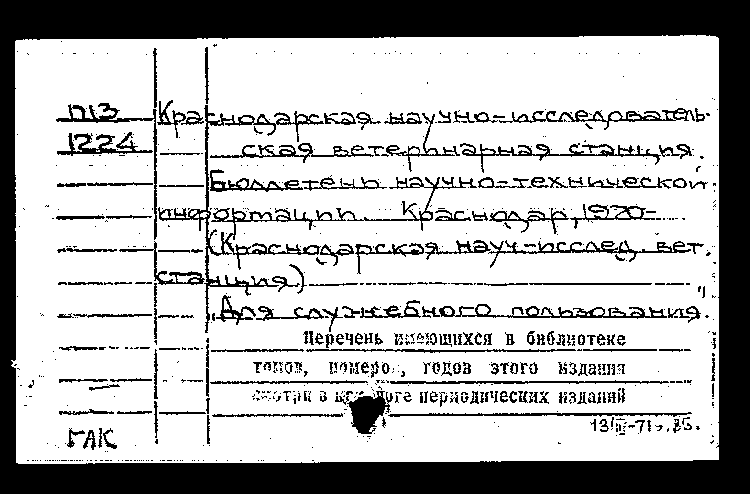 П13
1224
Краснодарская научно-исследователь-
ская ветеринарная станция.
Бюллетень научно-технической
информации. Краснодар, 1970-
(Краснодарская науч-исслед. вет.
станция)
"Для служебного пользования."
Перечень имеющихся в библиотеке
томов, номеро , годов этого издания
смотри в логе периодических изданий
13/III-71г.
ГЛК